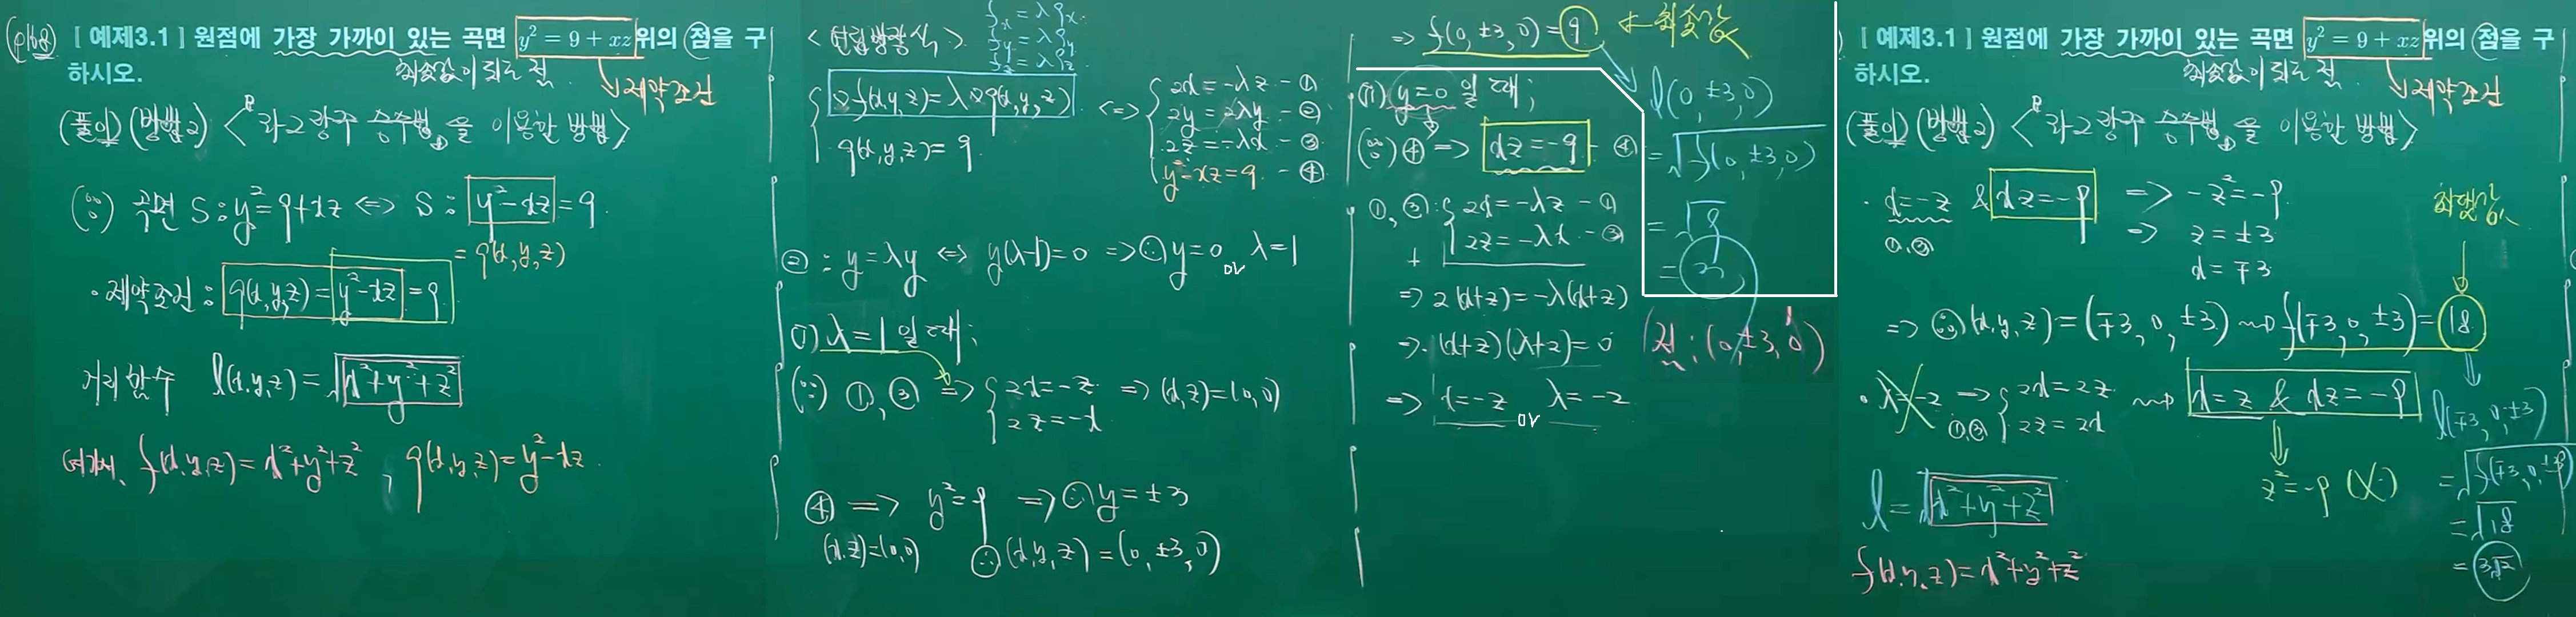 (p168) [ 예제3.1 ] 원점에 가장 가까이 있는 곡면 y² = 9 + xz 위의 점을 구
하시오.
최솟값이 되는 점
제약조건
(풀이) (방법2) <라그랑주 승수법을 이용한 방법>
(∵) 곡면 S : y² = 9+xz <=> S : y²-xz = 9
= g(x,y,z)
· 제약조건 : g(x,y,z) = y²-xz = 9
거리함수 l(x,y,z) = √x²+y²+z²
여기서, f(x,y,z) = x²+y²+z² , g(x,y,z) = y²-xz
<연립방정식>
fx = λgx
fy = λgy
fz = λgz
∇f(x,y,z) = λ∇g(x,y,z)
g(x,y,z) = 9
<=>
2x = -λz - ①
2y = 2λy - ②
2z = -λx - ③
y²-xz = 9 - ④
② : y = λy <=> y(λ-1)=0 => ∴ y=0 or λ=1
(i) λ=1일 때;
(∵) ①, ③ => 2x = -z => (x,z)=(0,0)
2z = -x
④ => y² = 9 => ∴ y = ±3
(x,z)=(0,0) ∴ (x,y,z) = (0, ±3, 0)
=> f(0, ±3, 0) = 9 ← 최솟값
(ii) y=0일 때;
(∵) ④ => xz = -9 - ④
①, ③ : 2x = -λz - ①
2z = -λx - ③
+
=> 2(x+z) = -λ(x+z)
=> (x+z)(λ+2) = 0
=> x=-z or λ=-2
l(0, ±3, 0)
= √f(0, ±3, 0)
= √9
= 3
(점 : (0, ±3, 0))
[ 예제3.1 ] 원점에 가장 가까이 있는 곡면 y² = 9 + xz 위의 점을 구
하시오.
최솟값이 되는 점
제약조건
(풀이) (방법2) <라그랑주 승수법을 이용한 방법>
· x=-z & xz=-9 => -z²=-9
①,③ => z = ±3
x = ∓3
최댓값
=> ∴ (x,y,z) = (∓3, 0, ±3) f(∓3, 0, ±3) = 18
· λ=-2 => 2x=2z x=z & xz=-9
①,③ 2z=2x
z²=-9 (X)
l = √x²+y²+z²
f(x,y,z) = x²+y²+z²
l(∓3, 0, ±3)
= √f(∓3, 0, ±3)
= √18
= 3√2